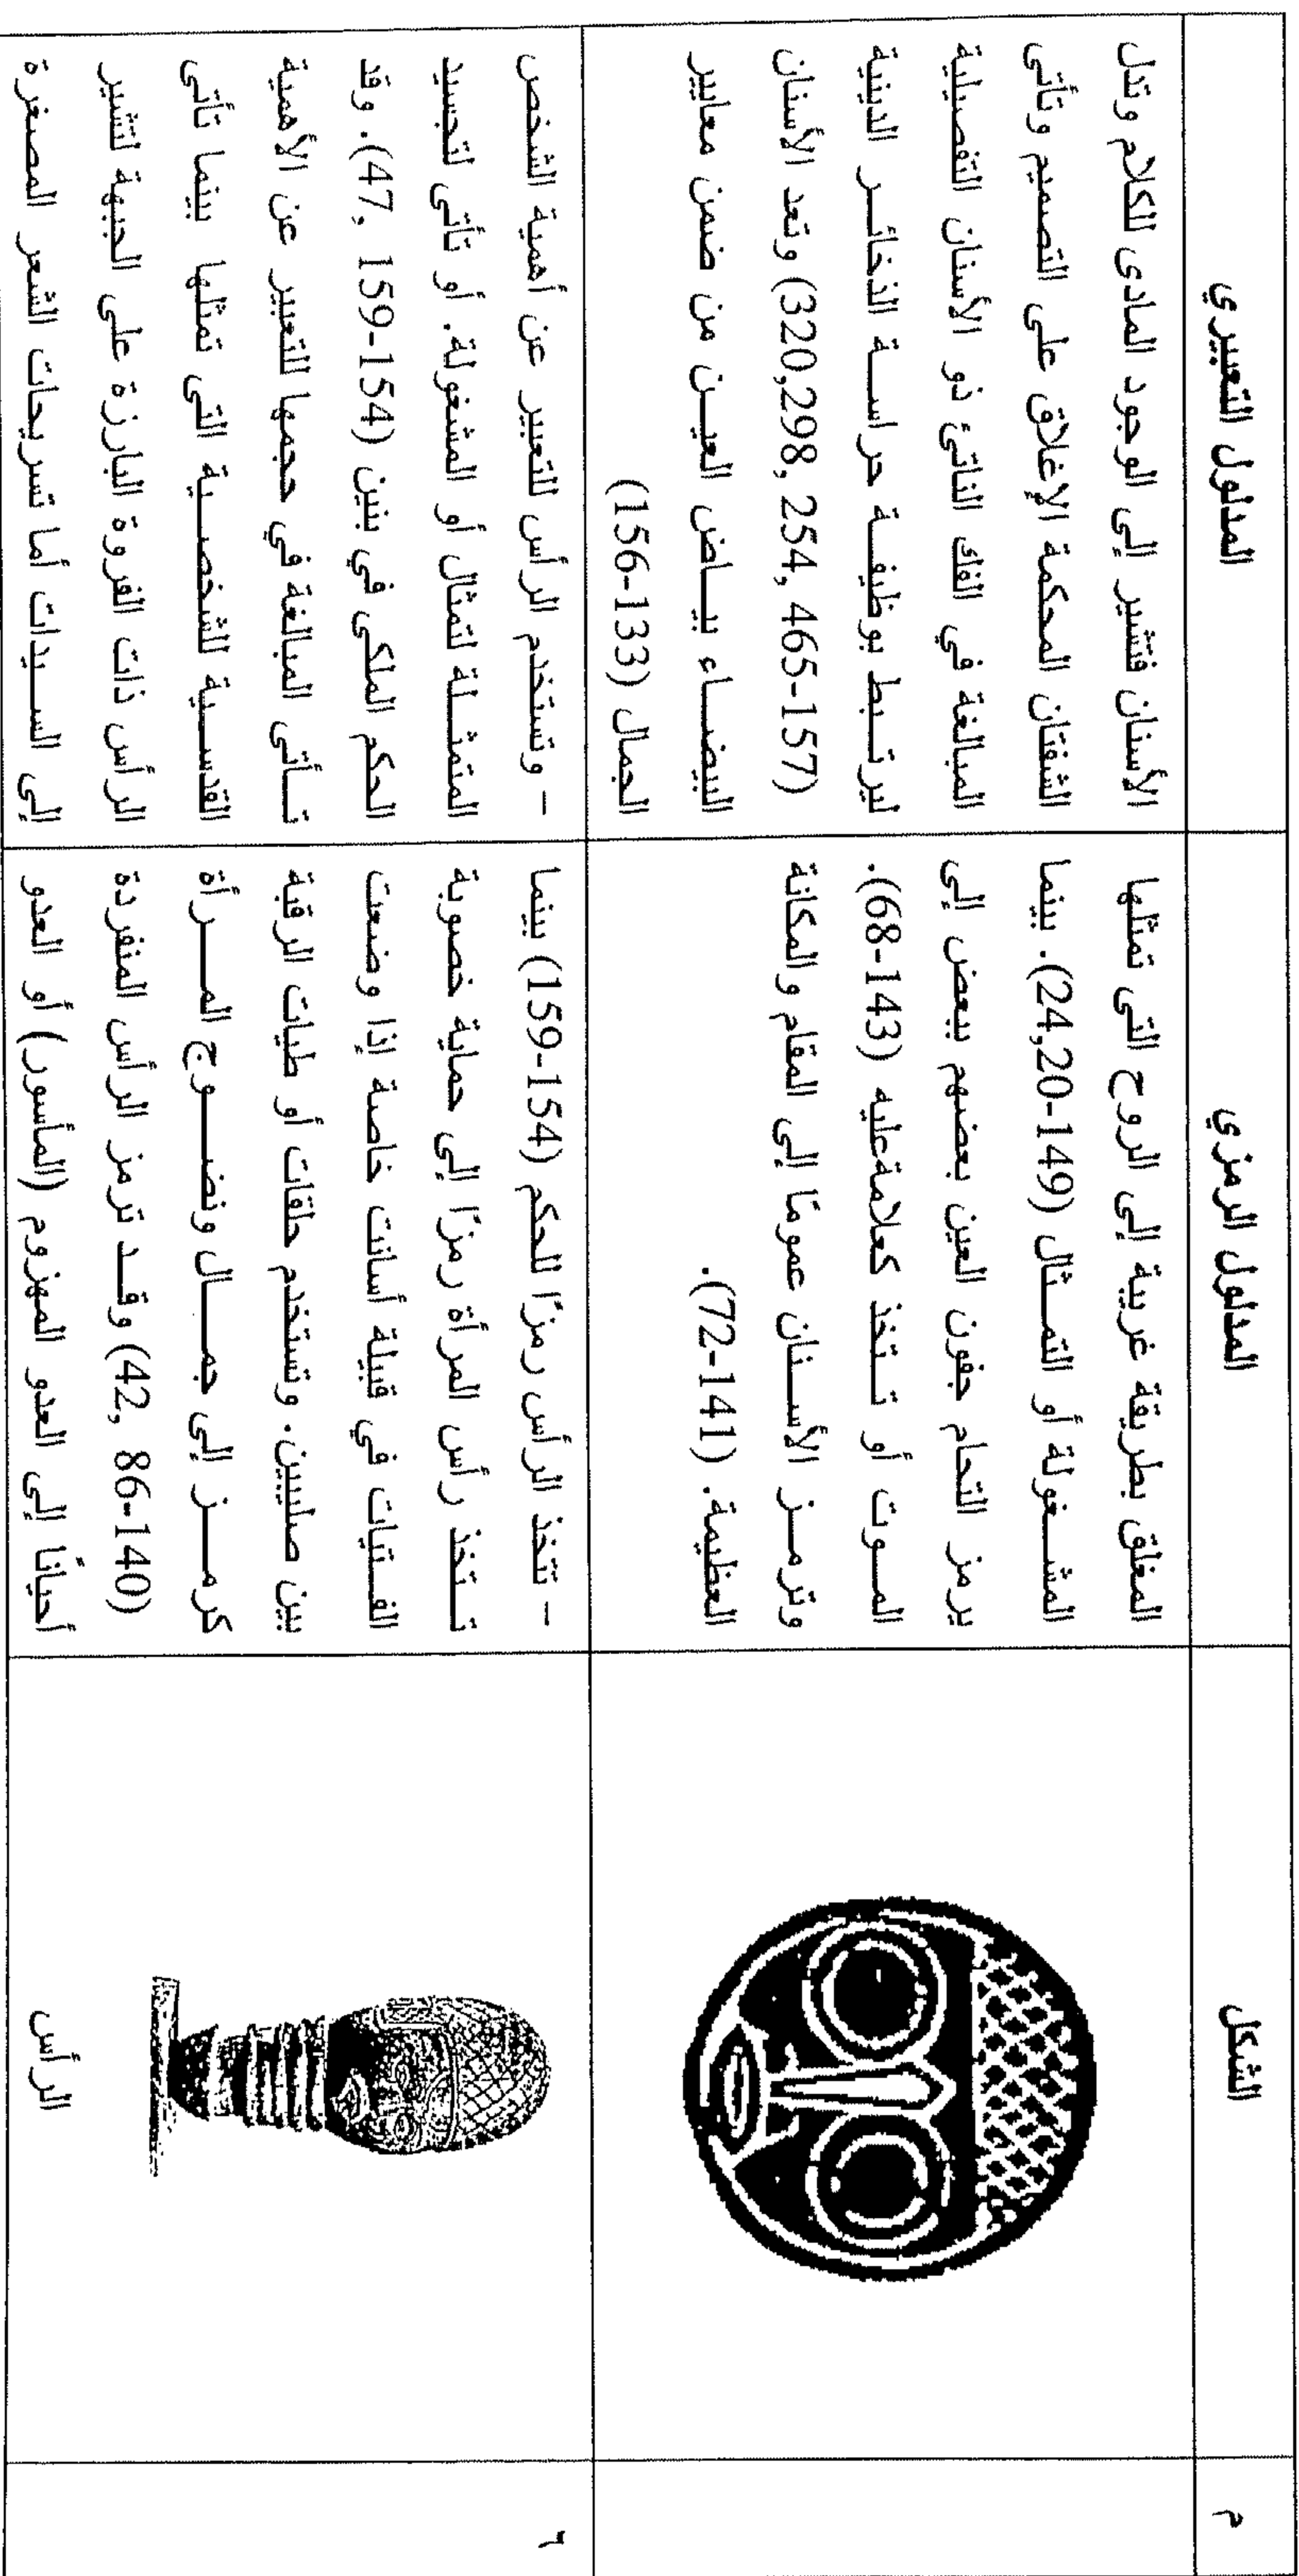 م
الشكل
المدلول الرمزي
المدلول التعبيري
المغلق بطريقة غريبة إلى الروح التى تمثلها
المشغولة أو التمثال (149-24,20). بينما
يرمز التحام جفون العين بعضهم ببعض إلى
الموت أو تتخذ كعلامة عليه (143-68).
وترمز الأسنان عمومًا إلى المقام والمكانة
العظيمة. (141-72).
الأسنان فتشير إلى الوجود المادى للكلام وتدل
الشفتان المحكمة الإغلاق على التصميم وتأتى
المبالغة في الفك الناتئ ذو الأسنان التفصيلية
ليرتبط بوظيفة حراسة الذخائر الدينية
(157-465 ,254 ,320,298) وتعد الأسنان
البيضاء بياض العين من ضمن معايير
الجمال (133-156)
٦
الرأس
- تتخذ الرأس رمزًا للحكم (154-159) بينما
تتخذ رأس المرأة رمزًا إلى حماية خصوبة
الفتيات في قبيلة أسانت خاصة إذا وضعت
بين صليبين. وتستخدم حلقات أو طيات الرقبة
كرمز إلى جمال ونضوج المرأة
(140-86 ,42) وقد ترمز الرأس المنفردة
أحيانًا إلى العدو المهزوم (المأسور) أو العدو
- وتستخدم الرأس للتعبير عن أهمية الشخص
المتمثلة لتمثال أو المشغولة. أو تأتى لتجسيد
الحكم الملكى في بنين (154-159 ,47). وقد
تأتى المبالغة في حجمها للتعبير عن الأهمية
القدسية للشخصية التى تمثلها بينما تأتى
الرأس ذات الفروة البارزة على الجبهة لتشير
إلى السيدات أما تسريحات الشعر المصغرة